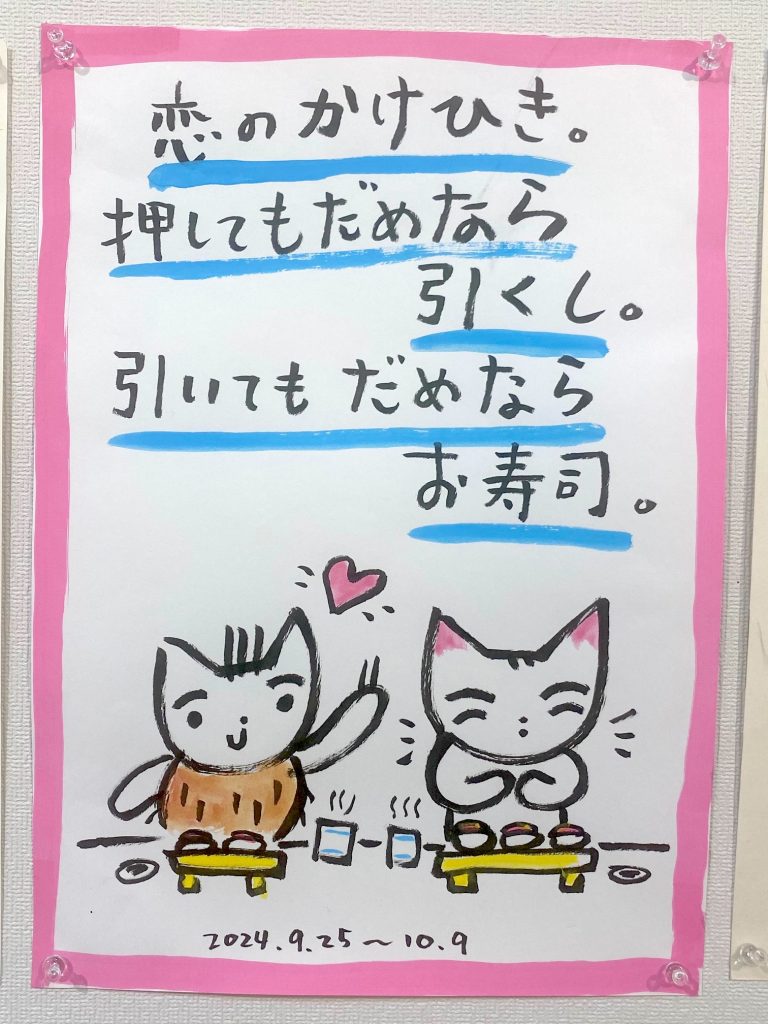 恋のかけひき。
押してもだめなら
引くし。
引いてもだめなら
お寿司。
2024.9.25〜10.9